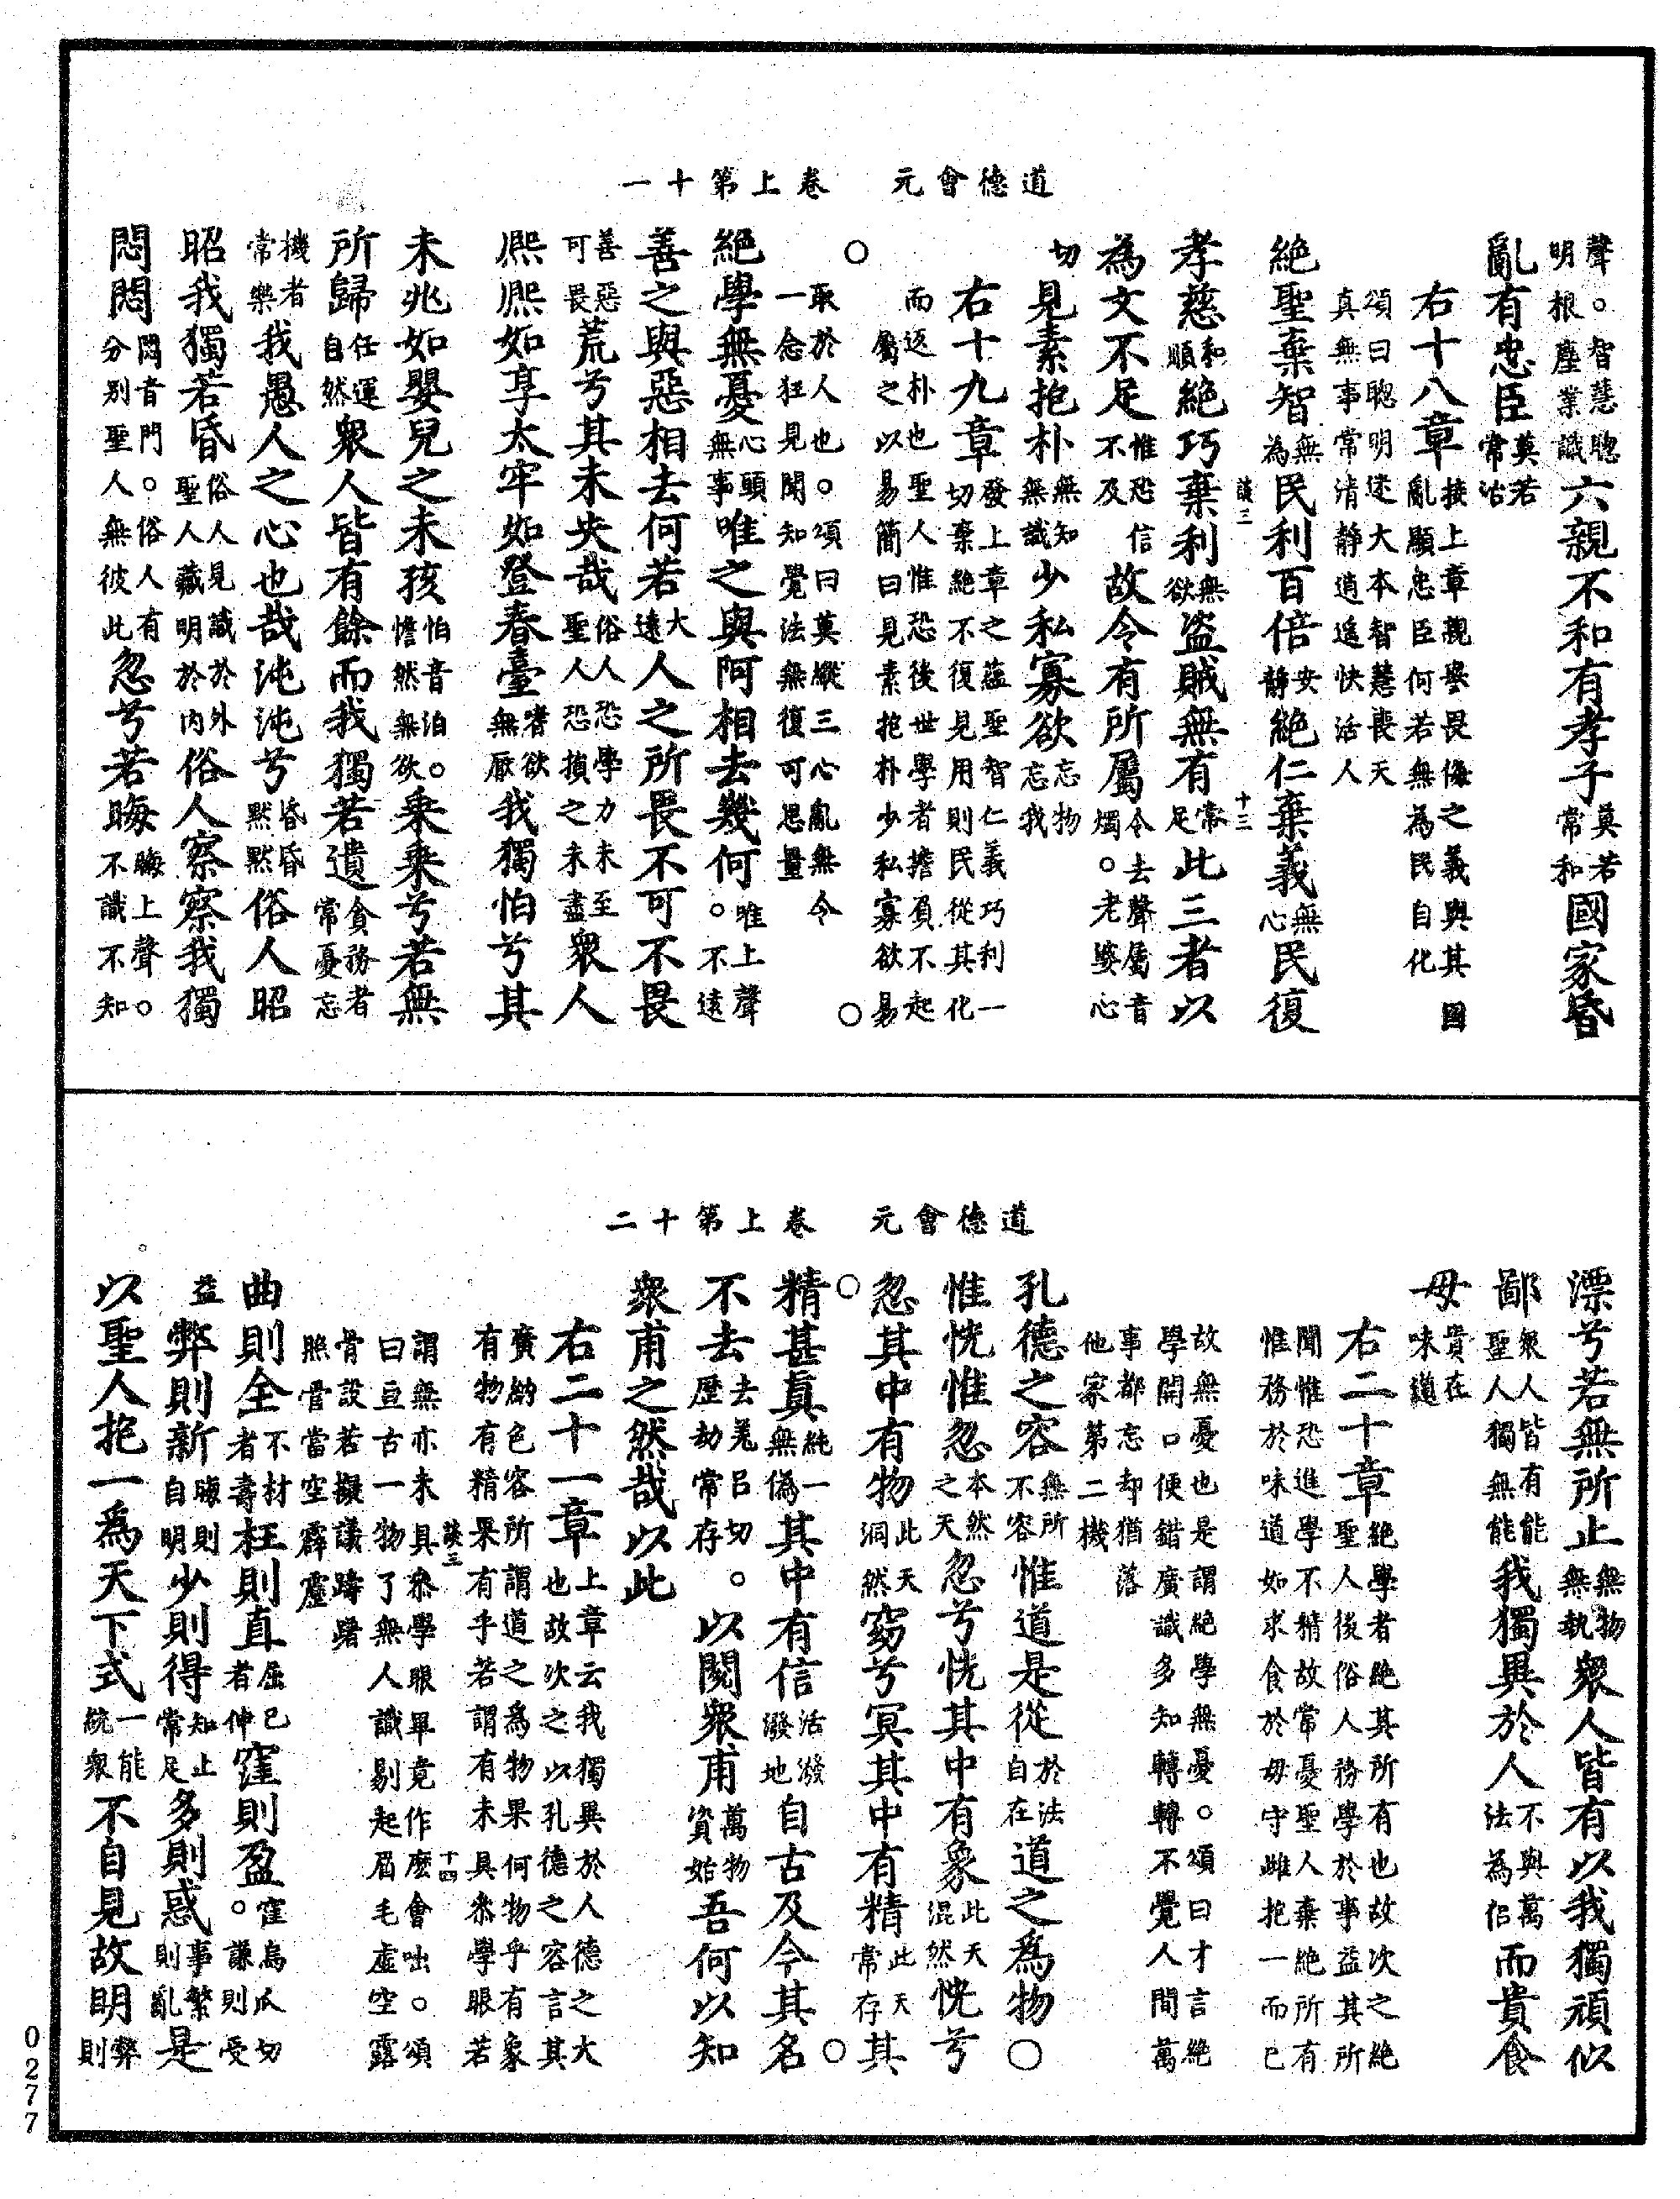 道德會元　卷上第十一
聲。智慧聰明根塵業識六親不和有孝子莫若常和國家昏
亂有忠臣莫若常治
右十八章接上章親譽畏侮之義與其國亂顯忠臣何若無為民自化
頌曰聰明迷大本智慧喪天真無事常清靜逍遙快活人
絕聖棄智無為民利百倍安靜絕仁棄義無心民復
孝慈和順絕巧棄利無欲盜賊無有常足此三者以
談三　十三
為文不足惟恐不及信故令有所屬令去聲屬音燭。老婆心
切見素抱朴無知無識少私寡欲忘物忘我
右十九章發上章之蘊聖智仁義巧利一切棄絕不復見用則民從其化
而返朴也聖人惟恐後世學者擔負不起屬之以易簡曰見素抱朴少私寡欲易
○取於人也。頌曰莫縱三心亂無令一念狂見聞知覺法無復可思量○
絕學無憂心頭無事唯之與阿相去幾何。唯上聲不遠
善之與惡相去何若大遠人之所畏不可不畏
善惡可畏荒兮其未央哉俗人恐學力未至聖人恐損之未盡眾人
熙熙如享太牢如登春臺嗜欲無厭我獨怕兮其
未兆如嬰兒之未孩怕音泊。憺然無欲乘乘兮若無
所歸任運自然眾人皆有餘而我獨若遺貪務者常憂忘
機者常樂我愚人之心也哉沌沌兮昏昏默默俗人昭
昭我獨若昏俗人見識於外聖人藏明於內俗人察察我獨
悶悶悶音門。俗人有分別聖人無彼此忽兮若晦晦上聲。不識不知
道德會元　卷上第十二
漂兮若無所止無物無執眾人皆有以我獨頑似
鄙眾人皆有能聖人獨無能我獨異於人不與萬法為侶而貴食
母貴在味道
右二十章絕學者絕其所有也故次之絕聖人後俗人務學於事益其所
聞惟恐進學不精故常憂聖人棄絕所有惟務於味道如求食於母守雌抱一而已
故無憂也是謂絕學無憂。頌曰才言絕學開口便錯廣識多知轉轉不覺人間萬
事都忘却猶落他家第二機
孔德之容無所不容惟道是從於法自在道之為物○
惟恍惟忽本然之天忽兮恍其中有象此天混然恍兮
忽其中有物此天洞然窈兮冥其中有精此天常存其
○精甚真純一無偽其中有信活潑潑地自古及今其名○
不去去羌呂切。歷劫常存以閱眾甫萬物資始吾何以知
眾甫之然哉以此
右二十一章上章云我獨異於人德之大也故次之以孔德之容言其
廣納色容所謂道之為物果何物乎有象有物有精果有乎若謂有未具參學眼若
談三　十四
謂無亦未具參學眼畢竟作麼會咄。頌曰亘古一物了無人識剔起眉毛虛空露
骨設若擬議躊躇照管當空霹靂
曲則全不材者壽枉則直屈己者伸窪則盈。窪烏瓜切謙則受
益弊則新晦則自明少則得知止常足多則惑事繁則亂是
以聖人抱一為天下式一能統眾不自見故明弊則
0277